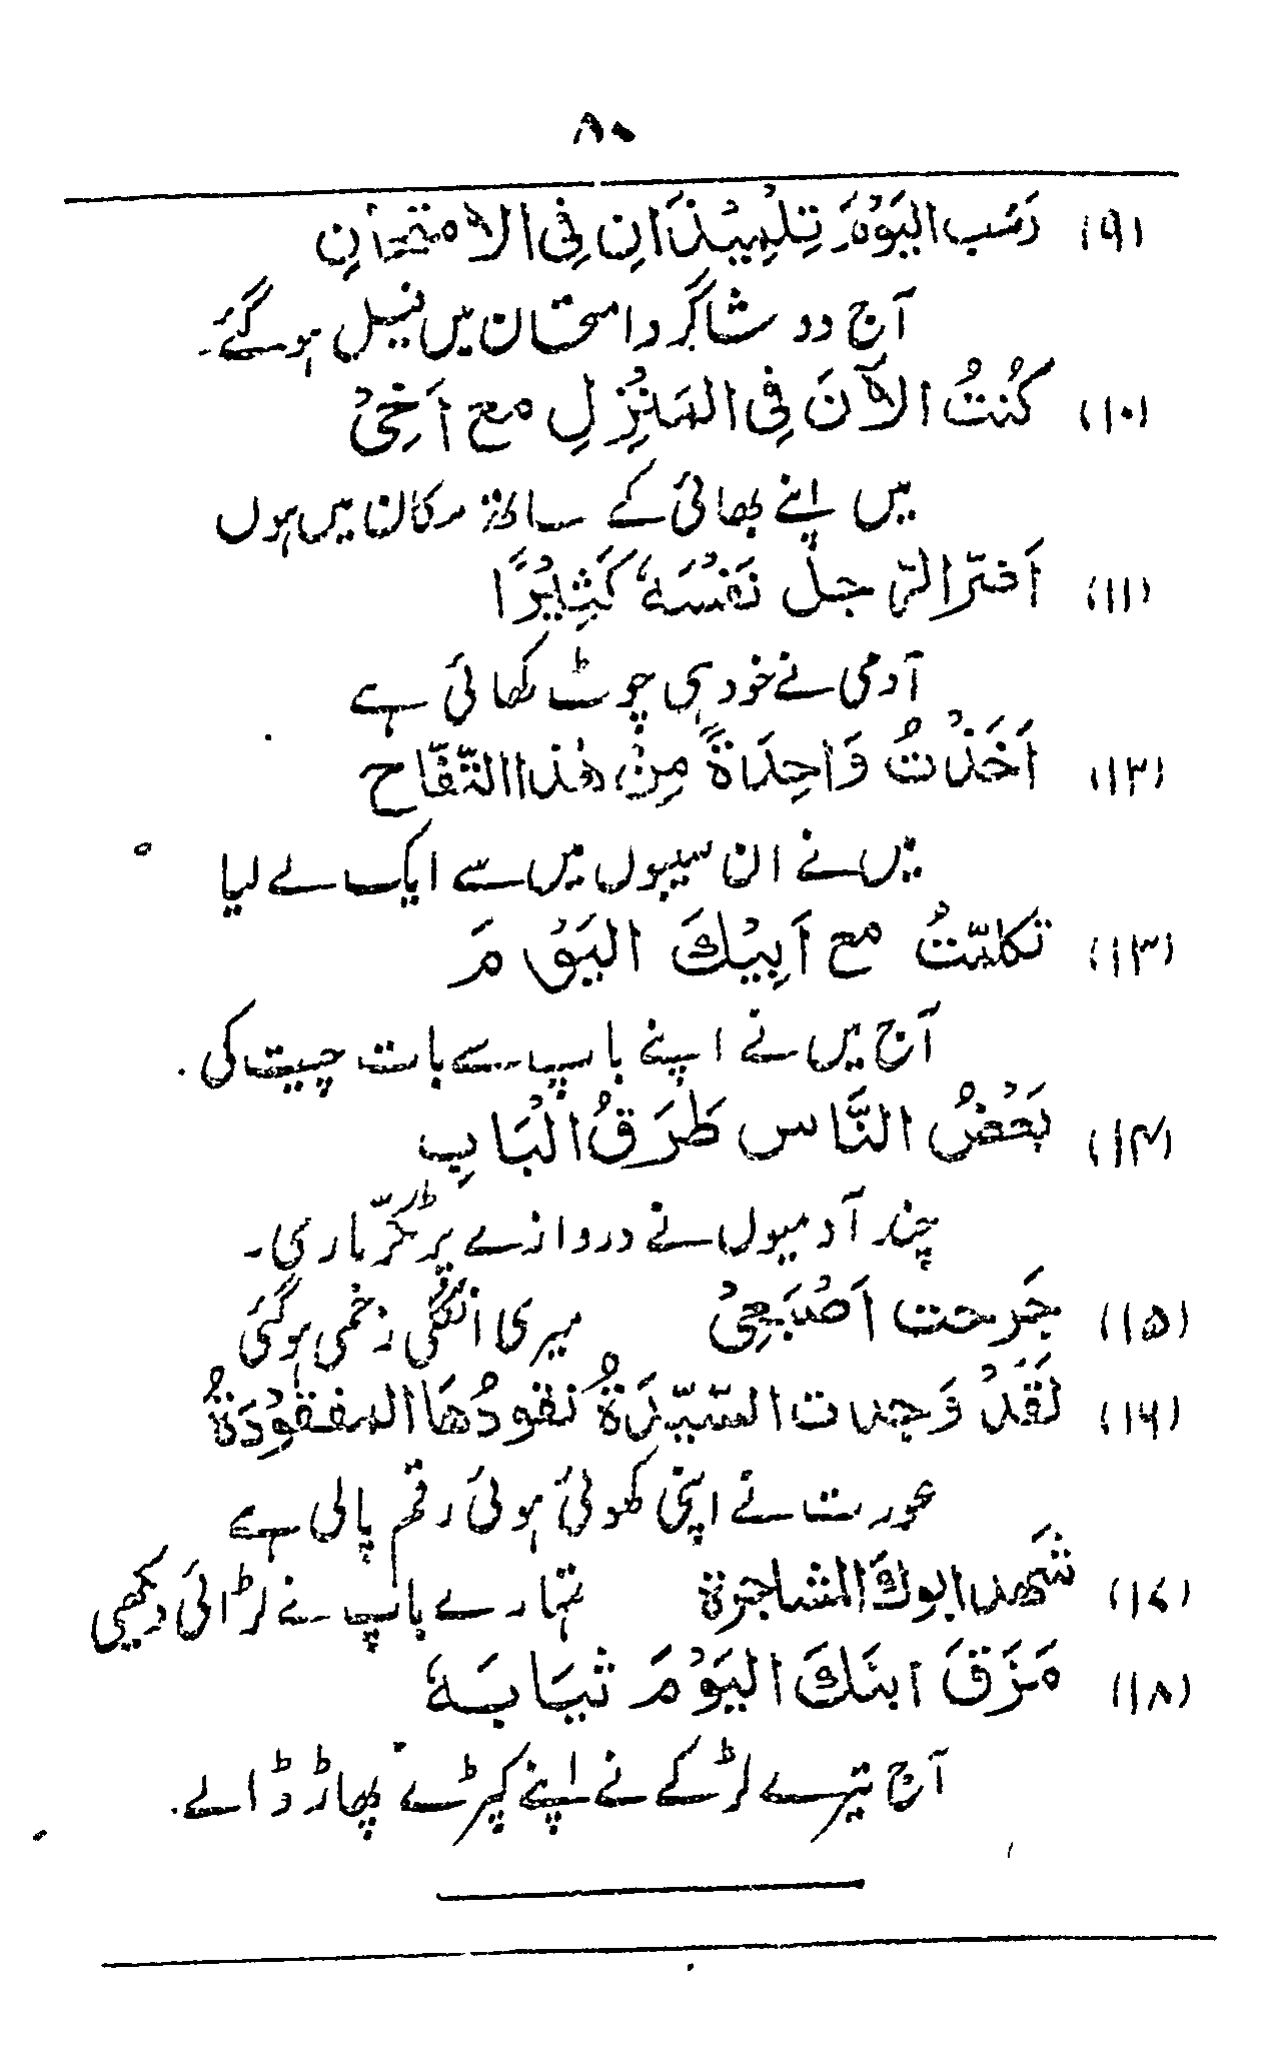 ۸۰
(۹) رَسَب الیَوْمَ تِلْمِیْذَانِ فِی الامتحانِ
آج دو شاگرد امتحان میں فیل ہوگئے۔
(۱۰) کُنتُ الآنَ فِی المَنزِلِ مع اَخِیْ
میں اپنے بھائی کے ساتھ مکان میں ہوں
(۱۱) اَضرّ الرّجل نَفْسَهٗ کَثِیْرًا
آدمی نے خود ہی چوٹ کھائی ہے
(۱۲) اَخَذْتُ وَاحِدَةً مِنْ هٰذا التّفّاح
میں نے ان سیبوں میں سے ایک لے لیا
(۱۳) تکلمّتُ مع اَبِیْكَ الیَوْمَ
آج میں نے اپنے باپ سے بات چیت کی.
(۱۴) بَعْضُ النَّاس طَرَقُ الْبَابِ
چند آدمیوں نے دروازے پر ٹکّر ماری۔
(۱۵) جَرحت اَصْبَعِیْ میری انگلی زخمی ہوگئی
(۱۶) لَقَدْ وَجدت السّیّدَةُ نقودُهَا المفقُوْدَةُ
عورت نے اپنی کھوئی ہوئی رقم پالی ہے
(۱۷) شَهد ابوكَ المشاجرة تمہارے باپ نے لڑائی دیکھی
(۱۸) مَزَقَ ابنَكَ الیَوْمَ ثیَابَهٗ
آج تیرے لڑکے نے اپنے کپڑے پھاڑ ڈالے.